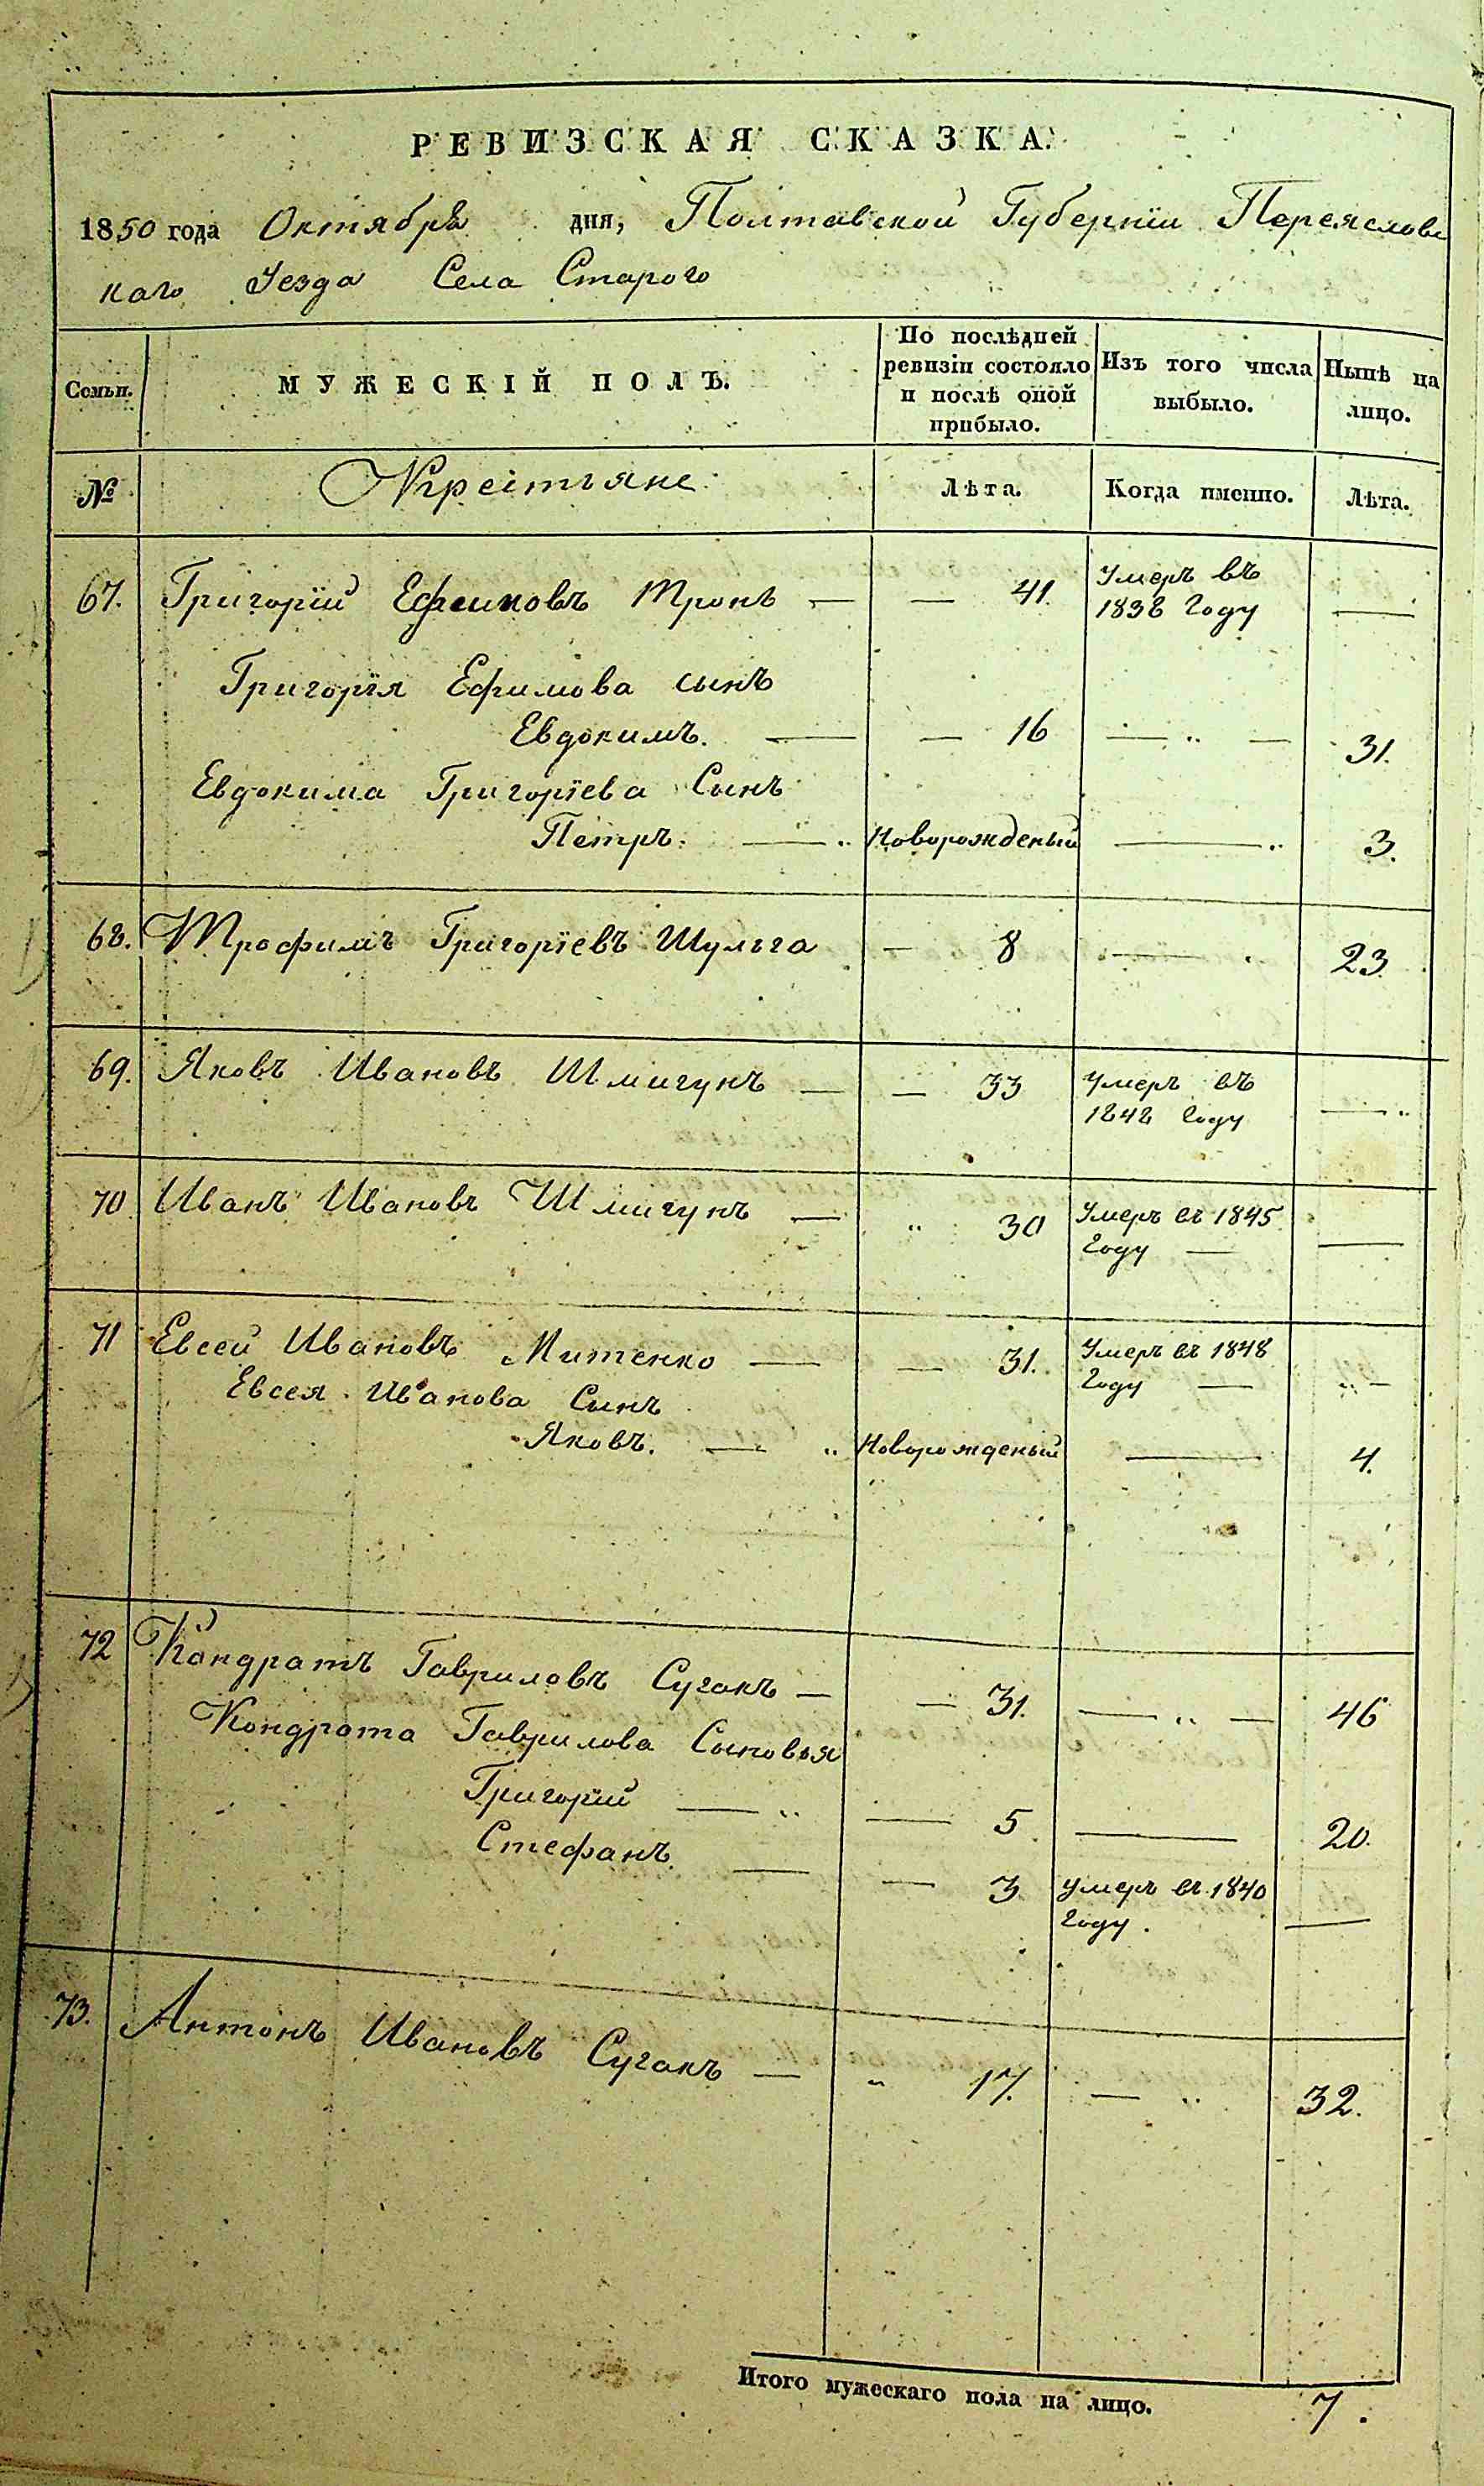 РЕВИЗСКАЯ СКАЗКА.
1850 года Октября дня, Полтавской Губернïи Переяслов
каго Уезда Села Старого
Семьи. МУЖЕСКІЙ ПОЛЪ. По послѣдней ревизіи состояло и послѣ оной прибыло. Изъ того числа выбыло. Нынѣ на лицо.
№ Крестьяне Лѣта. Когда именно. Лѣта.
67. Григорïй Ефимовъ Тронь — — 41. Умеръ въ
1838 Году —
Григорïя Ефимова сынъ
Евдокимъ. — — 16 — „ — 31.
Евдокима Григорïева Сынъ
Петръ. — „ Новорожденый — „ 3.
68. Трофимъ Григорïевъ Шульга — 8 — 23
69. Яковъ Ивановъ Шмигунъ — — 33 Умеръ въ
1848 Году — „
70 Иванъ Ивановъ Шмигунъ — „ 30 Умеръ въ 1845
Году — —
71 Евсей Ивановъ Митенко — — 31. Умеръ въ 1848
Году — „ —
Евсея Иванова Сынъ
Яковъ. — „ Новорожденый — 4.
72 Кондратъ Гавриловъ Сугакъ — — 31. — „ — 46
Кондрата Гаврилова Сыновья
Григорïй — „ — 5 — 20.
Стефанъ. — — 3 Умеръ въ 1840
Году. —
73. Антонъ Ивановъ Сугакъ — „ 17. — „ 32.
Итого мужескаго пола на лицо. 7.